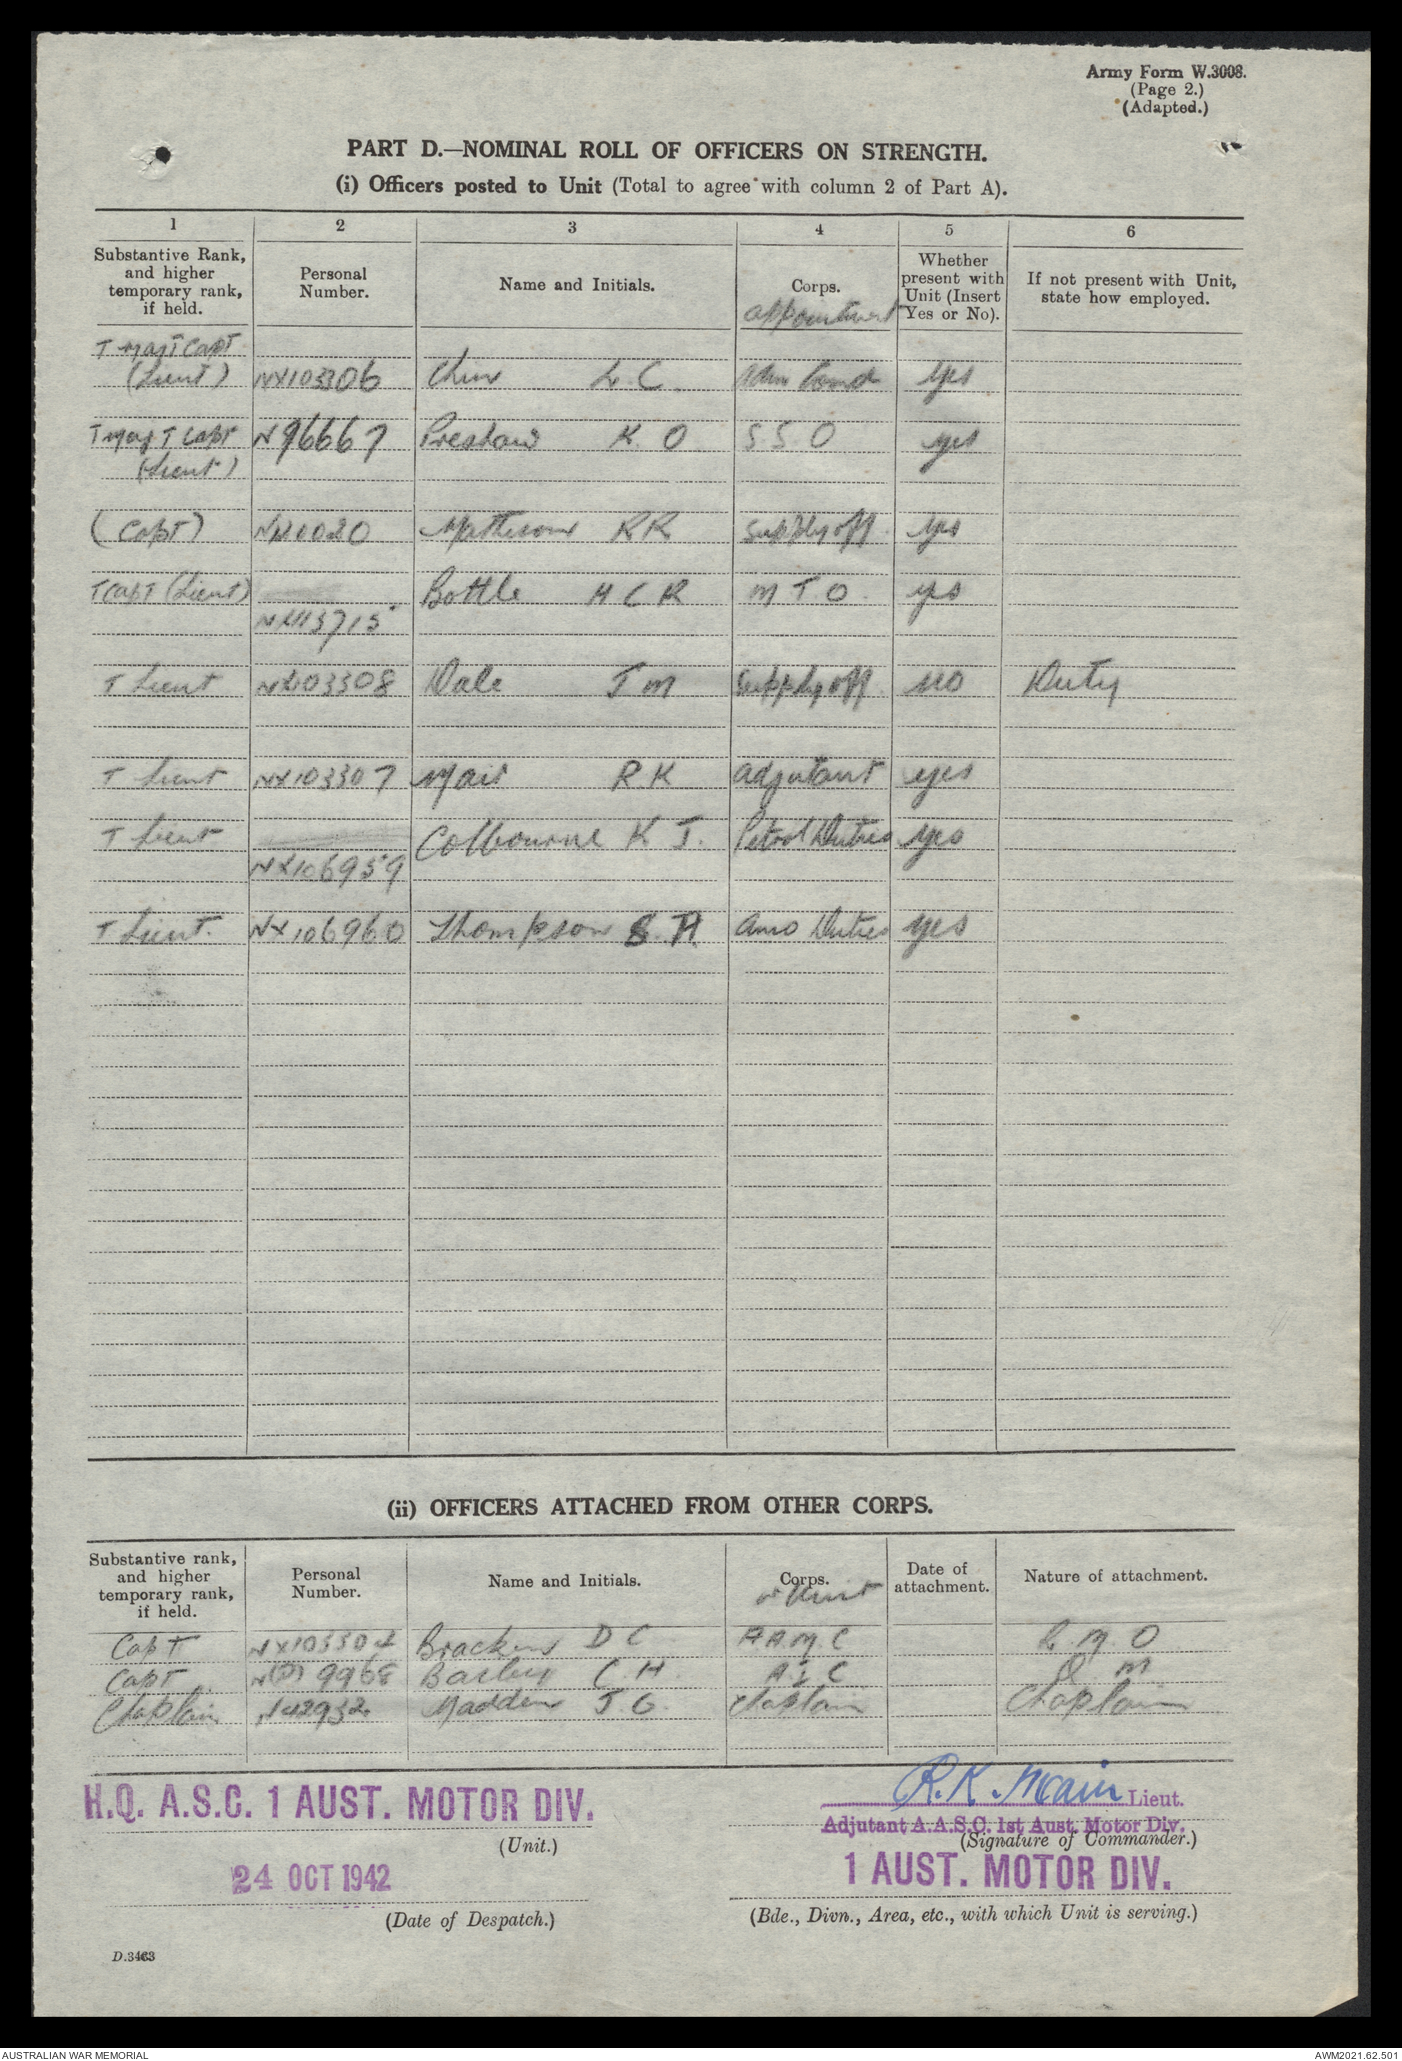 Army Form W.3008.
(Page 2.)
(Adapted.)
PART D.—NOMINAL ROLL OF OFFICERS ON STRENGTH.
(i) Officers posted to Unit (Total to agree with column 2 of Part A).
1 2 3 4 5 6
Substantive Rank, and higher temporary rank, if held.
Personal Number.
Name and Initials.
Corps.
appointment
Whether present with Unit (Insert Yes or No).
If not present with Unit, state how employed.
T Maj T Capt
(Lieut) NX103306 L. C. yes
T Maj T Capt N96667 Preshaw K. O S S O yes
(Lieut)
(Capt) Mattieson R R Supply off. yes
T Capt (Lieut) Bottle H C R M T O. yes
NX113715
T Lieut NX103308 Dale J M Supply off. no Duty
T Lieut NX103307 Mair R. K adjutant yes
T Lieut Colbourne K J. Petrol Duties yes
NX106959
T Lieut. NX106960 Thompson S. A. Amo Duties yes
(ii) OFFICERS ATTACHED FROM OTHER CORPS.
Substantive rank, and higher temporary rank, if held.
Personal Number.
Name and Initials.
Corps.
or Unit
Date of attachment.
Nature of attachment.
Capt NX103304 Bracken D C A.A.M.C R. M. O
Capt C. H. Q M
Chaplain N42932 Madden J. G. Chaplain Chaplain
H.Q. A.S.C. 1 AUST. MOTOR DIV.
(Unit.)
24 OCT 1942
(Date of Despatch.)
R. K. Mair Lieut.
Adjutant A.A.S.C. 1st Aust. Motor Div.
(Signature of Commander.)
1 AUST. MOTOR DIV.
(Bde., Divn., Area, etc., with which Unit is serving.)
D.3463
AUSTRALIAN WAR MEMORIAL
AWM2021.62.501